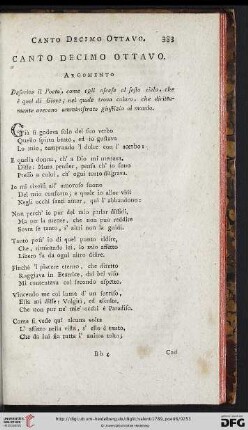 CANTO DECIMO OTTAVO. 383
CANTO DECIMO OTTAVO.
ARGOMENTO
Descrive il Poeta, come egli ascese al sesto cielo, che
è quel di Giove; nel quale trova coloro, che diritta-
mente avevano amministrato giustizia al mondo.
Già si godeva solo del suo verbo
Quello spirto beato, ed io gustava
Lo mio, temprando 'l dolce con l' acerbo:
E quella donna, ch' a Dio mi menava,
Disse: Muta pensier, pensa ch' io sono
Presso a colui, ch' ogni torto disgrava.
Io mi rivolsi all' amoroso suono
Del mio conforto; e quale io allor vidi
Negli occhi santi amor, qui l' abbandono:
Non perch' io pur del mio parlar diffidi,
Ma per la mente, che non può reddire
Sovra se tanto, s' altri non la guidi.
Tanto poss' io di quel punto ridire,
Che, rimirando lei, lo mio affetto
Libero fu da ogni altro disire.
Finchè 'l piacere eterno, che diretto
Raggiava in Beatrice, dal bel viso
Mi contentava col secondo aspetto,
Vincendo me col lume d' un sorriso,
Ella mi disse: Volgiti, ed ascolta,
Che non pur ne' mie' occhi è Paradiso.
Come si vede quì alcuna volta
L' affetto nella vista, s' ello è tanto,
Che da lui sia tutta l' anima tolta;
Bb 4 Così
http://digi.ub.uni-heidelberg.de/diglit/
DFG